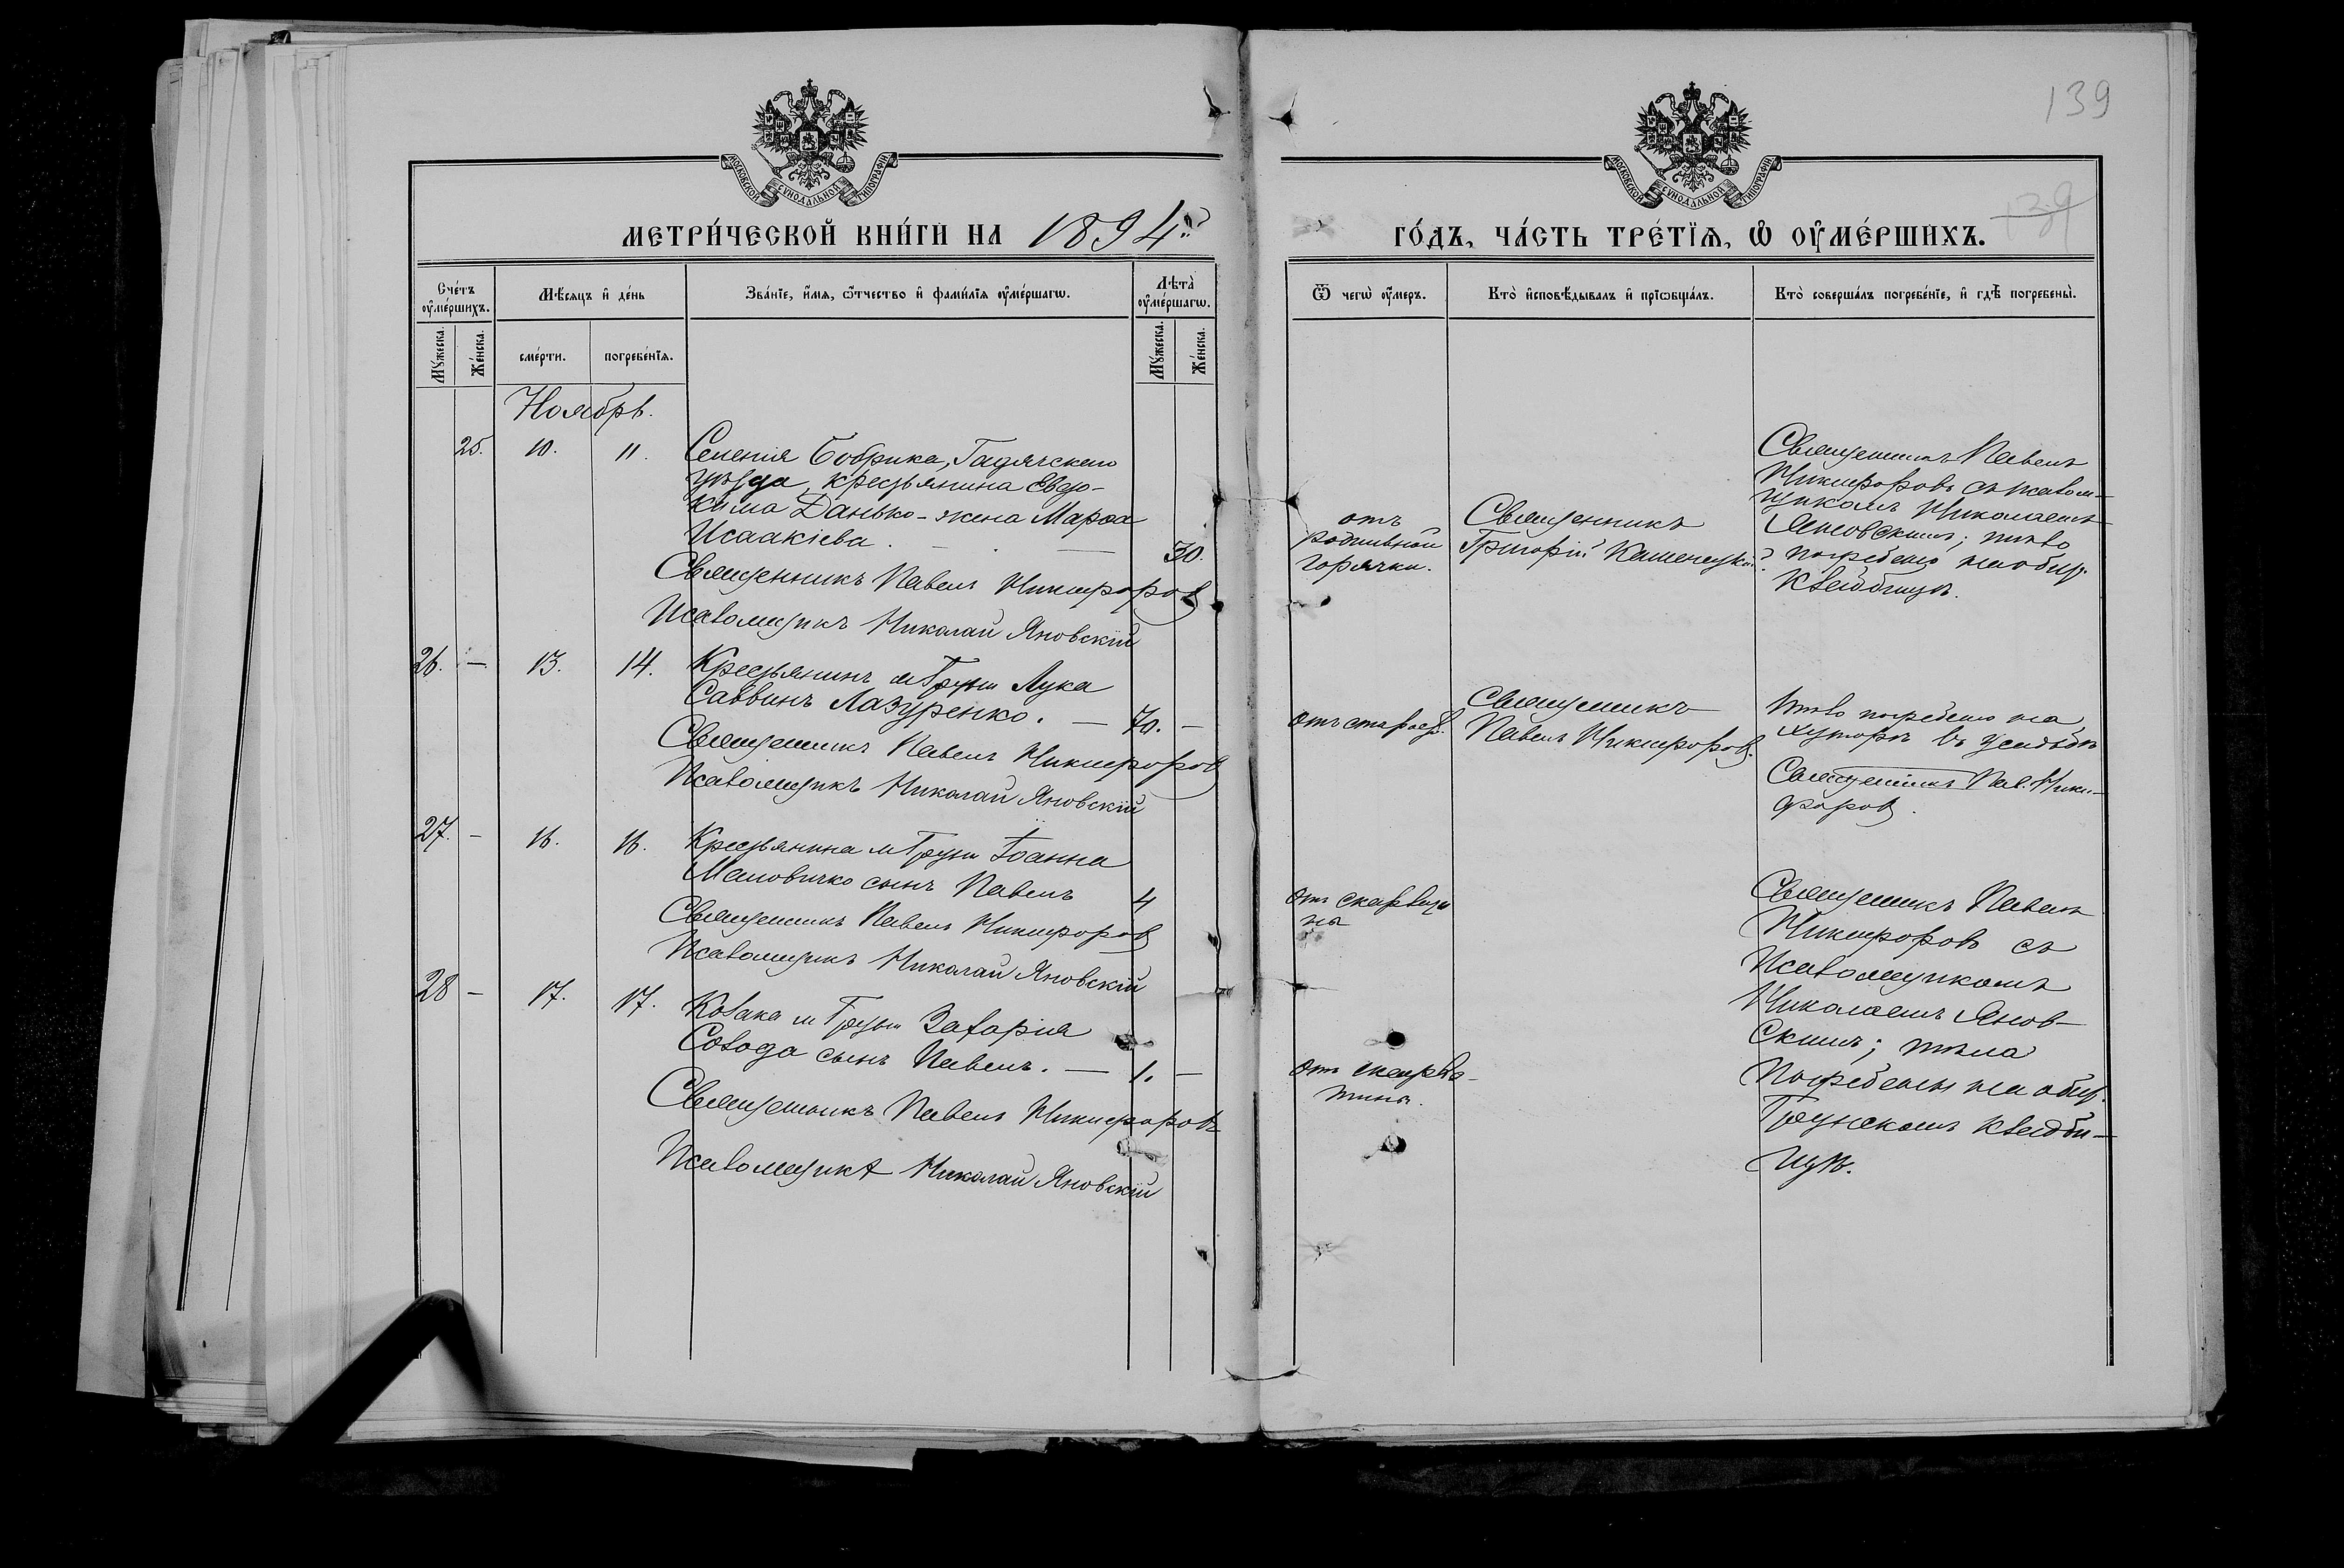 139
МОСКОВСКОЙ СѴНОДАЛЬНОЙ ТИПОГРАФІИ
МОСКОВСКОЙ СѴНОДАЛЬНОЙ ТИПОГРАФІИ
139
МЕТРИ́ЧЕСКОЙ КНИ́ГИ НА 1894й
ГО́ДЪ, ЧА́СТЬ ТРЕ́ТЇѦ, Ѡ҆ ОУ҆МЕ́РШИХЪ.
Сче́тъ оу҆ме́ршихъ.
Мѣ́сѧцъ и҆ де́нь
Зва́нїе, и҆́мѧ, ѻ҆́тчество и҆ фами́лїѧ оу҆ме́ршагѡ.
Лѣта̀ оу҆ме́ршагѡ.
Ѿ чегѡ̀ оу҆́меръ.
Кто̀ и҆сповѣ́дывалъ и҆ прїѡбща́лъ.
Кто̀ соверша́лъ погребе́нїе, и҆ гдѣ̀ погребены̀.
Мꙋ́жеска.
Же́нска.
сме́рти.
погребе́нїѧ.
Мꙋ́жеска.
Же́нска.
Ноябрь.
25. 10. 11. Селенія Бобрика, Гадячскаго
уѣзда, крестьянина Евдо-
кима Данько - жена Марѳа
Исаакіева. 30.
Священникъ Павелъ Никифоровъ
Псаломщикъ Николай Яновскій
отъ
родильной
горячки.
Священникъ
Григорій Каменецкій
Священникъ Павелъ
Никифоровъ съ псалом-
щикомъ Николаемъ
Яновскимъ; тѣло
погребено на общ.
кладбищѣ.
26. — 13. 14. Крестьянинъ м Груни Лука
Саввинъ Лазуренко. — 70. —
Священникъ Павелъ Никифоровъ
Псаломщикъ Николай Яновскій
отъ старос.
Священникъ
Павелъ Никифоровъ.
Тѣло погребено на
хуторѣ въ усадьбѣ
Священникъ Пав. Ники-
форовъ.
27. — 16. 16. Крестьянина м Груни Іоанна
сынъ Павелъ 4
Священникъ Павелъ Никифоровъ
Псаломщикъ Николай Яновскій
отъ скарлати
ны
Священникъ Павелъ
Никифоровъ съ
Псаломщикомъ
Николаемъ Янов-
скимъ; тѣла
погребены на общ.
Грунскомъ кладби-
щѣ.
28 — 17. 17. Козака м Груни Захарія
сынъ Павелъ. — 1. —
Священникъ Павелъ Никифоровъ
Псаломщикъ Николай Яновскій
отъ скарла-
тины.